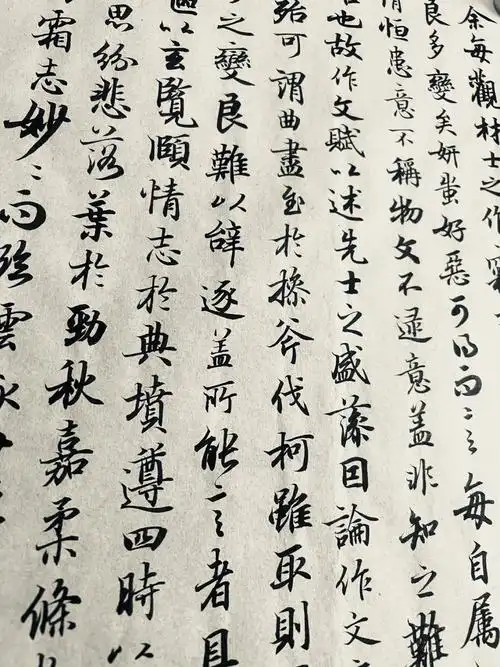 余每觀材士之作竊
良多變矣妍蚩好惡可得而言每自屬
情恒患意不稱物文不逮意盖非知之難
也故作文賦以述先士之盛藻因論作文
殆可謂曲盡至於操斧伐柯雖取則
之變良難以辭逐盖所能言者具
區以玄覽頤情志於典墳遵四時以
思紛悲落葉於勁秋嘉柔條
霜志妙〻而臨雲